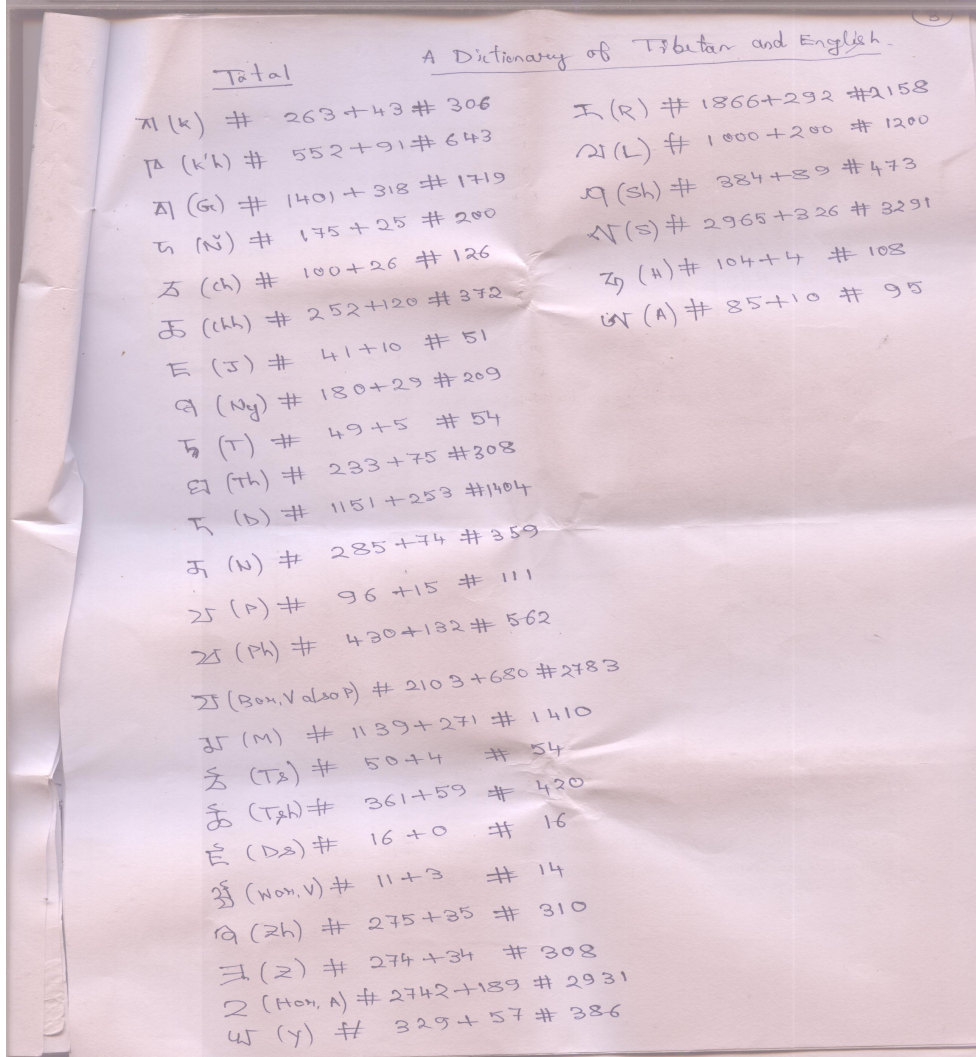 3
A Dictionary of Tibetan and English.
Total
ཀ (K) # 263+43 # 306
ཁ (K'h) # 552+91 # 643
ག (G) # 1401+318 # 1719
ང (Ñ) # 175+25 # 200
ཅ (ch) # 100+26 # 126
ཆ (chh) # 252+120 # 372
ཇ (J) # 41+10 # 51
ཉ (Ny) # 180+29 # 209
ཏ (T) # 49+5 # 54
ཐ (Th) # 233+75 # 308
ད (D) # 1151+253 # 1404
ན (N) # 285+74 # 359
པ (P) # 96+15 # 111
ཕ (Ph) # 430+132 # 562
བ (Bor, V also P) # 2103+680 # 2783
མ (M) # 1139+271 # 1410
ཙ (Ts) # 50+4 # 54
ཚ (Tsh) # 361+59 # 420
ཛ (Ds) # 16+0 # 16
ཝ (Wor, V) # 11+3 # 14
ཞ (Zh) # 275+35 # 310
ཟ (Z) # 274+34 # 308
འ (Hor, A) # 2742+189 # 2931
ཡ (Y) # 329+57 # 386
ར (R) # 1866+292 # 2158
ལ (L) # 1000+200 # 1200
ཤ (Sh) # 384+89 # 473
ས (S) # 2965+326 # 3291
ཧ (H) # 104+4 # 108
ཨ (A) # 85+10 # 95